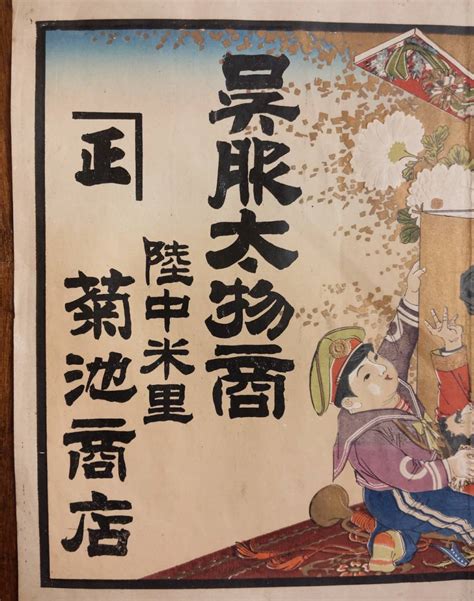 呉服太物商
陸中米里
正
菊池商店